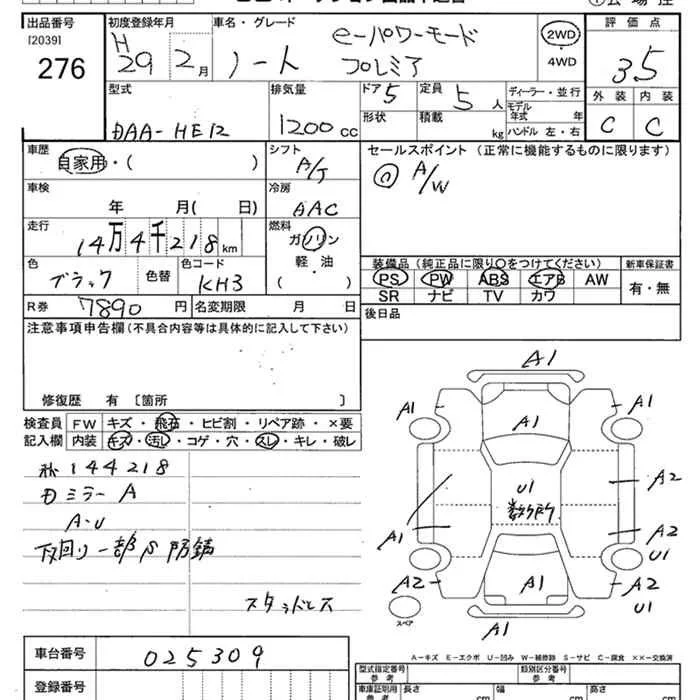 出品番号
[2039]
276
初度登録年月
H
29 2月
車名・グレード
ノート e-パワーモード
プレミア
2WD
・
4WD
評価点
3.5
外装 内装
C C
型式
DAA-HE12
排気量
1200cc
ドア 5
形状
定員 5人
積載 kg
ディーラー・並行
モデル
年式 年
ハンドル 左・右
車歴
自家用・( )
シフト
A/T
セールスポイント (正常に機能するものに限ります)
A/W
車検
年 月( 日)
冷房
AAC
走行
14万4千218km
燃料
ガソリン
軽・油
( )
色
ブラック
色替
色コード
KH3
装備品(純正品に限り○をつけてください)
新車保証書
PS PW ABS エアB AW
SR ナビ TV カワ
有・無
R券 7890円
名変期限 月 日
後日品
注意事項申告欄(不具合内容等は具体的に記入して下さい)
修復歴 有 〔箇所 〕
検査員
記入欄
FW キズ・飛石・ヒビ割・リペア跡・×要
内装 キズ・汚レ・コゲ・穴・スレ・キレ・破レ
144218
ミラー A
A・U
下回り一部S防錆
スタッドレス
A1
A1
A1
A1
A1
A1
A1
A2
A2
A2
A2
U1
U1
U1
数ヶ所
スペア
A-キズ E-エクボ U-凹み W-補修跡 S-サビ C-腐食 ××-交換済
車台番号
025309
登録番号
型式指定番号
参考
類別区分番号
参考
車庫証明用
参考
長さ cm
幅 cm
高さ cm